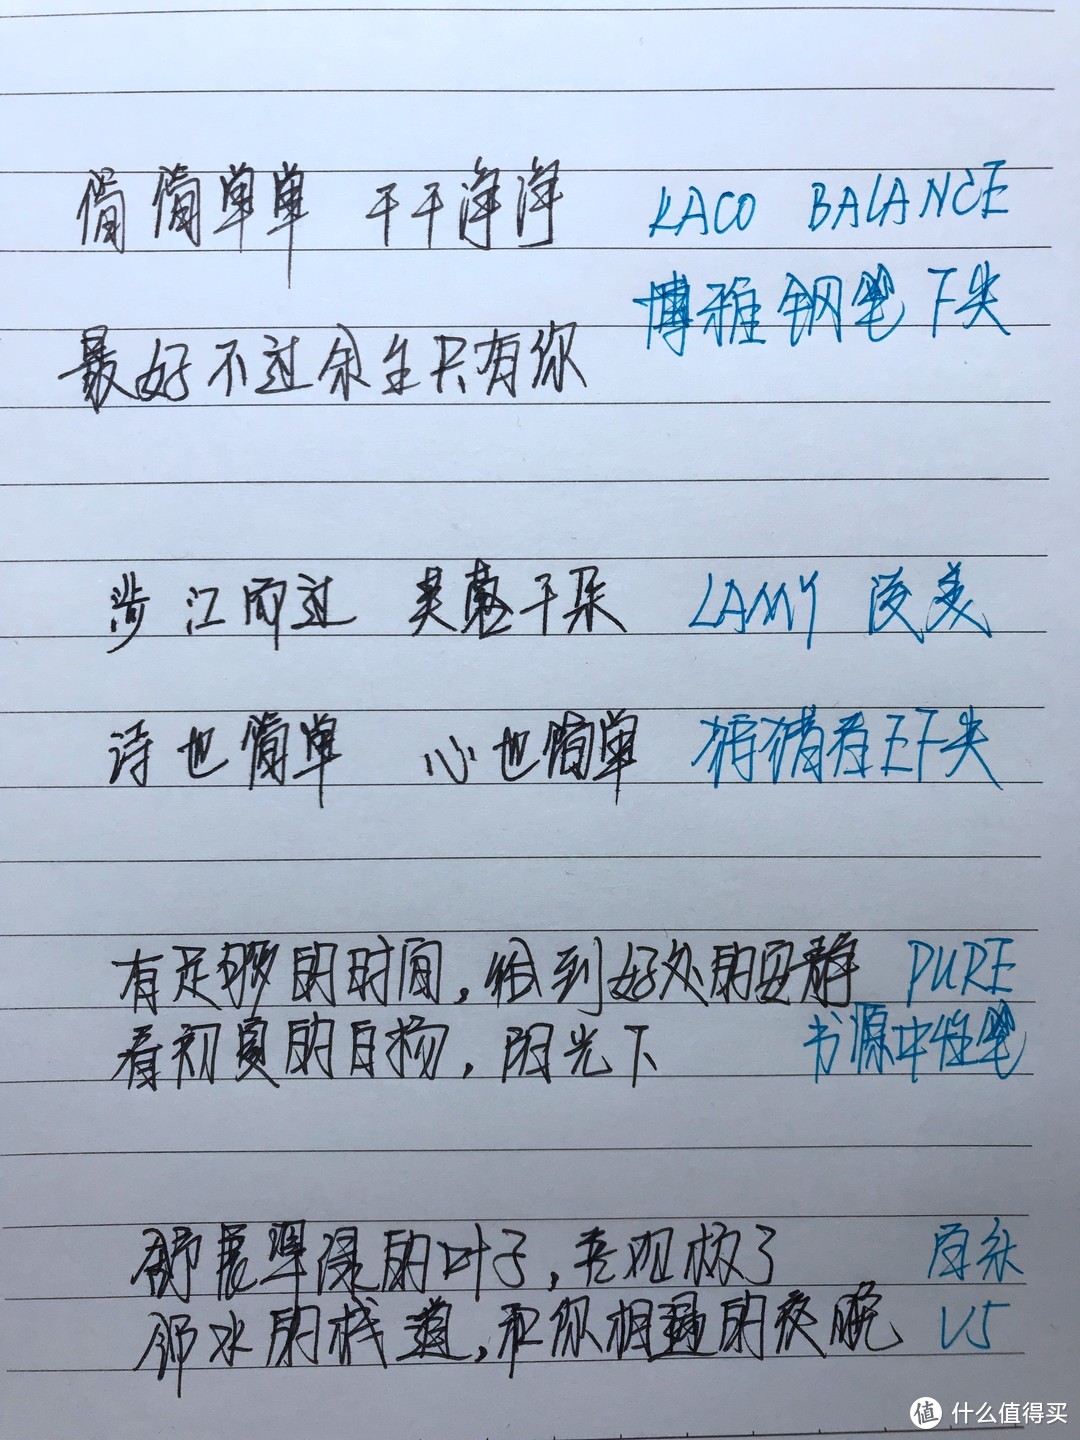 简简单单 干干净净 KACO BALANCE
博雅钢笔 F尖
最好不过余生只有你
涉江而过 芙蓉千朵 LAMY 凌美
诗也简单 心也简单 狩猎者EF尖
有足够的时间,恰到好处的安静 PURE
看初夏的白杨,阳光下 书源中性笔
舒展翠绿的叶子,壮观极了 百乐
邻水的栈道,和你相遇的夜晚 V5
值 什么值得买